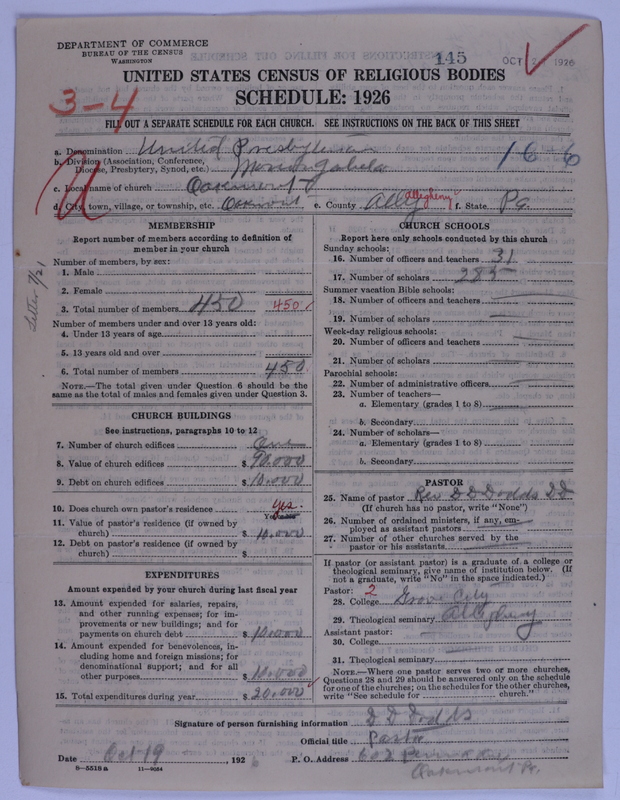 DEPARTMENT OF COMMERCE
BUREAU OF THE CENSUS
WASHINGTON
145
OCT 2 1926
UNITED STATES CENSUS OF RELIGIOUS BODIES
SCHEDULE: 1926
3-4
FILL OUT A SEPARATE SCHEDULE FOR EACH CHURCH. SEE INSTRUCTIONS ON THE BACK OF THIS SHEET
a. Denomination United Presbyterian
b. Division (Association, Conference, Diocese, Presbytery, Synod, etc.) Monongahela
16-6
c. Local name of church Oakmont
d. City, town, village, or township, etc. Oakmont e. County Alleg Allegheny f. State Pa.
MEMBERSHIP
Report number of members according to definition of
member in your church
Number of members, by sex:
1. Male
2. Female
3. Total number of members 450 450
Number of members under and over 13 years old:
4. Under 13 years of age
5. 13 years old and over
6. Total number of members 450
NOTE.—The total given under Question 6 should be the
same as the total of males and females given under Question 3.
Letter 7/21
CHURCH BUILDINGS
See instructions, paragraphs 10 to 12
7. Number of church edifices One
8. Value of church edifices $ 90.000
9. Debt on church edifices $ 10.000
10. Does church own pastor's residence yes.
11. Value of pastor's residence (if owned by
church) $ 10.000
12. Debt on pastor's residence (if owned by
church) $
EXPENDITURES
Amount expended by your church during last fiscal year
13. Amount expended for salaries, repairs,
and other running expenses; for im-
provements or new buildings; and for
payments on church debt $ 10.000
14. Amount expended for benevolences, in-
cluding home and foreign missions; for
denominational support; and for all
other purposes $ 10.000
15. Total expenditures during year $ 20.000
CHURCH SCHOOLS
Report here only schools conducted by this church
Sunday schools:
16. Number of officers and teachers 31
17. Number of scholars 285
Summer vacation Bible schools:
18. Number of officers and teachers
19. Number of scholars
Week-day religious schools:
20. Number of officers and teachers
21. Number of scholars
Parochial schools:
22. Number of administrative officers
23. Number of teachers—
a. Elementary (grades 1 to 8)
b. Secondary
24. Number of scholars—
a. Elementary (grades 1 to 8)
b. Secondary
PASTOR
25. Name of pastor Rev. D D Dodds DD
(If church has no pastor, write "None")
26. Number of ordained ministers, if any, em-
ployed as assistant pastors
27. Number of other churches served by the
pastor or his assistants
If pastor (or assistant pastor) is a graduate of a college or
theological seminary, give name of institution below. (If
not a graduate, write "No" in the space indicated.)
Pastor: 2
28. College Grove City
29. Theological seminary Allegheny
Assistant pastor:
30. College
31. Theological seminary
NOTE.—Where one pastor serves two or more churches,
Questions 28 and 29 should be answered only on the schedule
for one of the churches; on the schedules for the other churches,
write "See schedule for church."
Signature of person furnishing information D D Dodds
Official title Pastor
Date Oct 19, 1926 P. O. Address 602
Oakmont Pa.
8-5518 a 11-9034